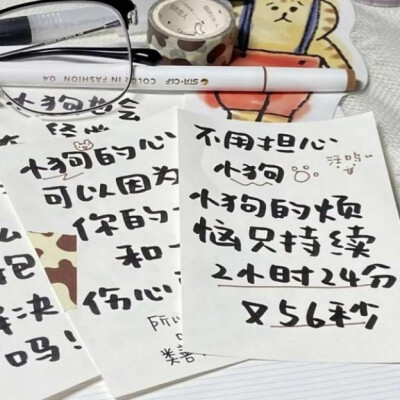 STA·CUP COLOR IN FASHION 04
小狗也会
小狗的心
可以因为
你的一
和一
伤心
类善
把
决
吗!
不用担心
小狗 汪呜
小狗的烦
恼只持续
2小时24分
又56秒